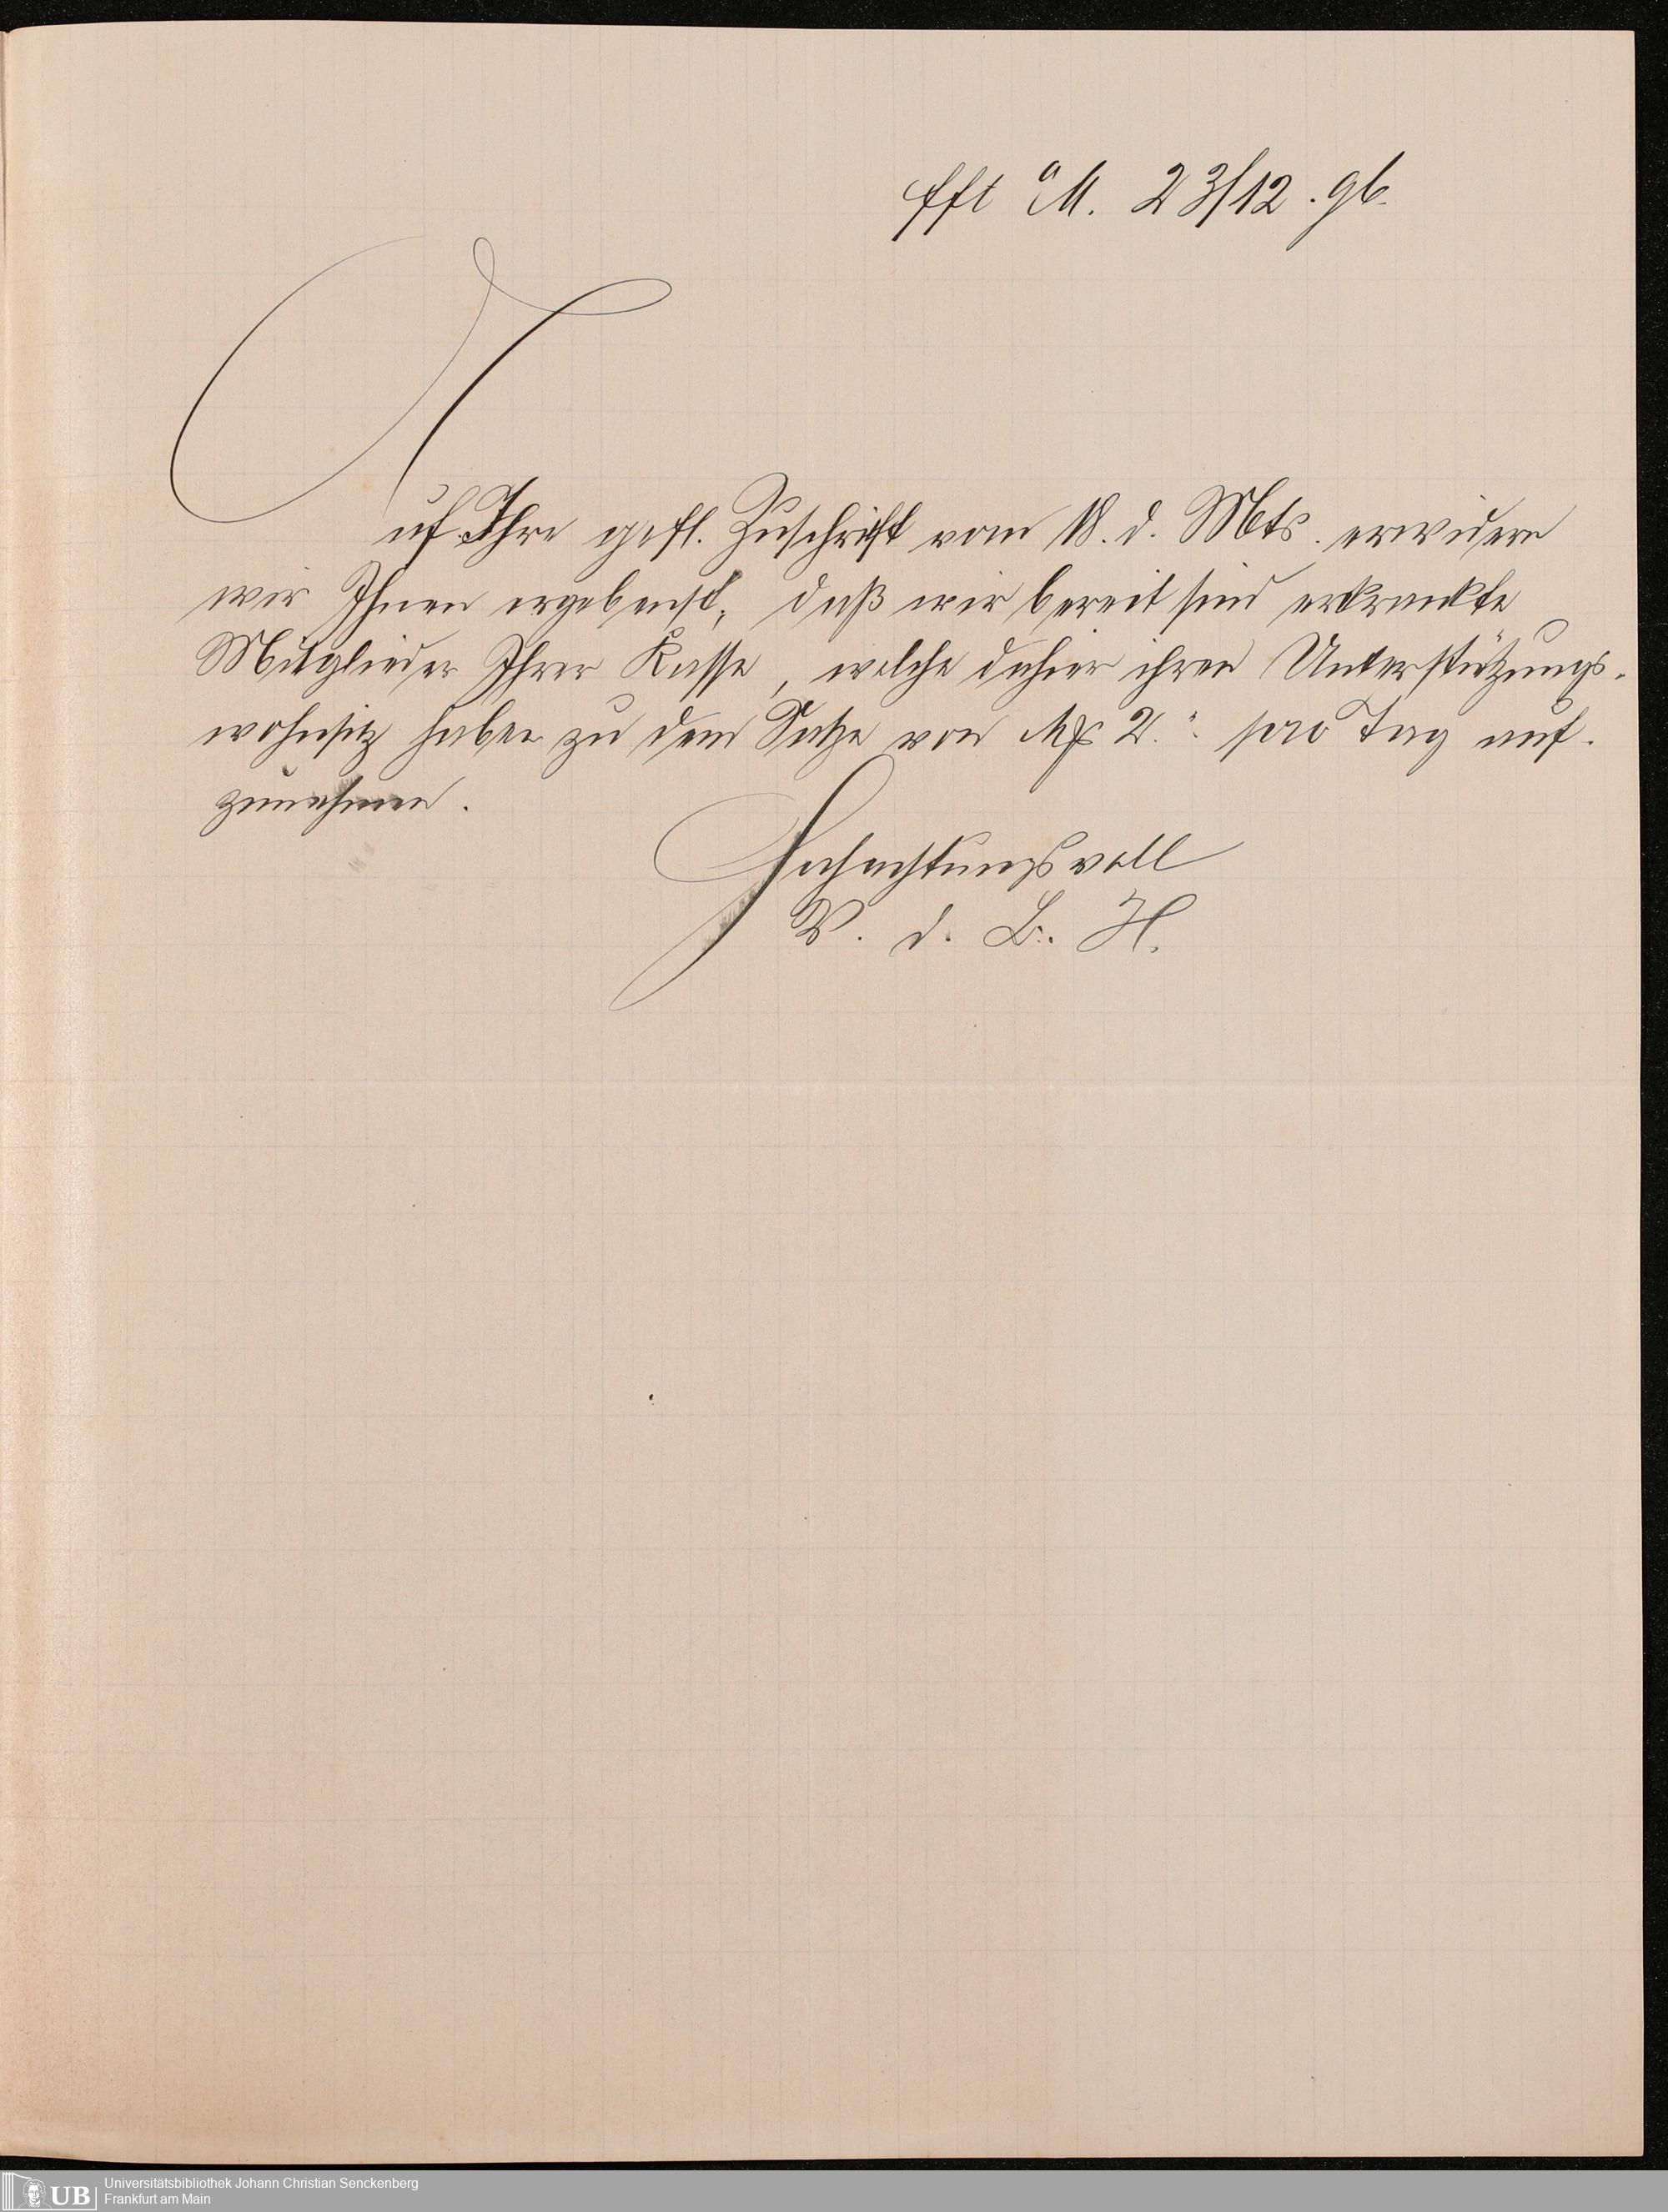 Fft a M. 23/12. 96.
Auf Ihre gefl. Zuschrift vom 18. d. Mts. erwidern
wir Ihnen ergebenst, daß wir bereit sind erkrankte
Mitglieder Ihrer Kasse, welche dahier ihren Unterstützungs-
wohnsitz haben zu dem Satze von Mk 2.- pro Tag auf-
zunehmen.
Hochachtungsvoll
V. d. B. H.
UB Universitätsbibliothek Johann Christian Senckenberg
Frankfurt am Main